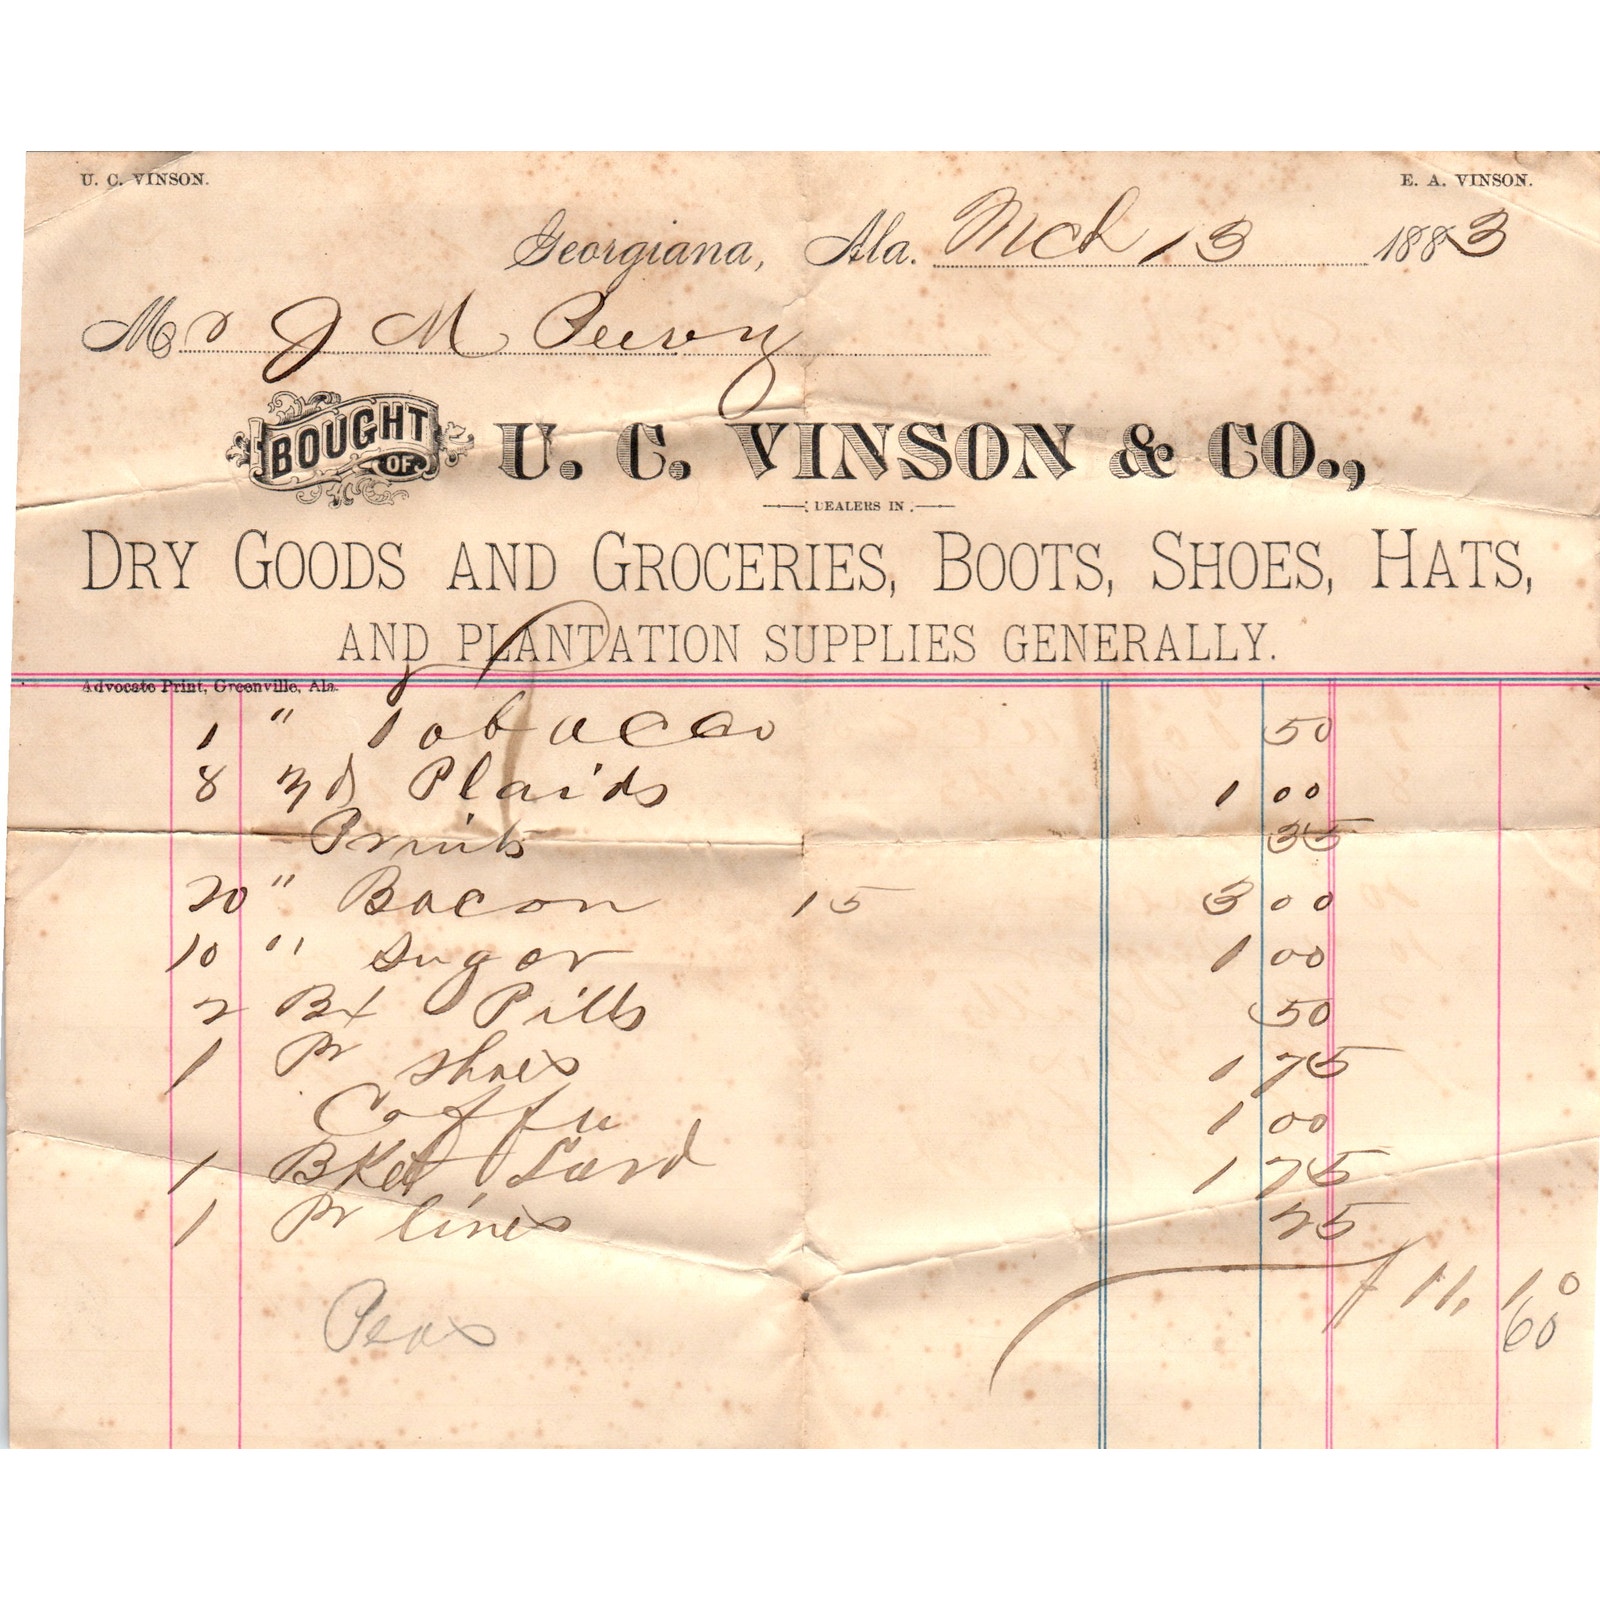 U. C. VINSON.
E. A. VINSON.
Georgiana, Ala. Mch 13 1883
Mr J M Peevy
BOUGHT OF U. C. VINSON & CO.,
DEALERS IN
DRY GOODS AND GROCERIES, BOOTS, SHOES, HATS,
AND PLANTATION SUPPLIES GENERALLY.
Advocate Print, Greenville, Ala.
1 " Tobacco 50
8 yd Plaids 1 00
Prints 35
20 " Bacon 15 3 00
10 " Sugar 1 00
2 Bx Pills 50
1 Pr Shoes 1 75
Coffee 1 00
1 BKet Lard 1 75
1 Pr lines 25
$ 11.10
Peas 60